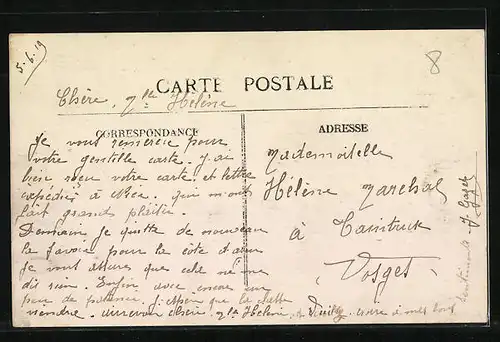 5.6.19
8
Chère Mlle Hélène
CARTE POSTALE
CORRESPONDANCE
ADRESSE
Je vous remercie pour
votre gentille carte. J'ai
bien reçu votre carte et lettre
expédiés à Nice. Qui m'ont
fait grands plaisir.
Demain je quitte de nouveau
la Savoie pour la côte d'azur
Je vous assure que cela ne me
dit rien. Enfin avec encore un
peu de patience. que la
viendra. aurevoir chère Mlle Hélène
Mademoiselle
Hélène Marchal
à
Vosges
à mes bons
sentiments J.